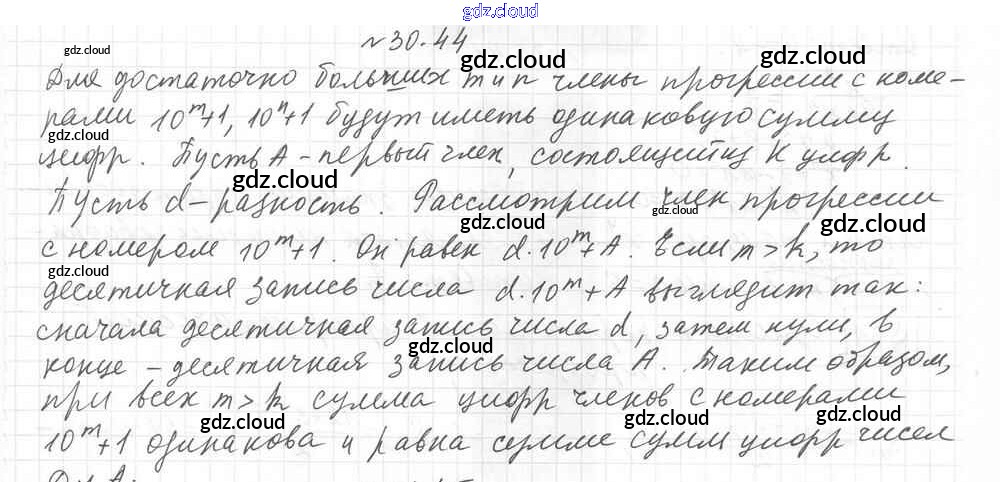 gdz.cloud
№30.44
gdz.cloud gdz.cloud gdz.cloud
Для достаточно больших m и n члены прогрессии с номе-
рами 10^m+1, 10^n+1 будут иметь одинаковую сумму
gdz.cloud gdz.cloud
цифр. Пусть A - первый член, состоящий из K цифр.
gdz.cloud
Пусть d - разность. Рассмотрим член прогрессии
gdz.cloud gdz.cloud
с номером 10^m+1. Он равен d·10^m+A. Если m>k, то
gdz.cloud
десятичная запись числа d·10^m+A выглядит так:
сначала десятичная запись числа d, затем нули, в
gdz.cloud
конце - десятичная запись числа A. Таким образом,
при всех m>k сумма цифр членов с номерами
gdz.cloud gdz.cloud gdz.cloud
10^m+1 одинакова и равна сумме сумм цифр чисел
D и A.